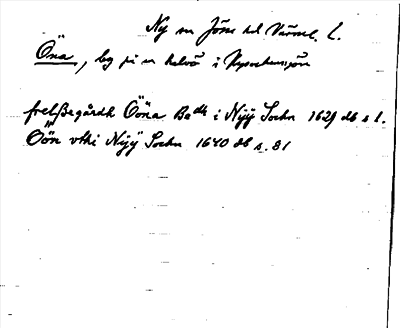 Ny sn Jösse hd Värml. l.
Öna, beg på en halvö i Nysockensjön
frelßegårdh Ööna Badh i Nÿÿ Sochn 1629 db s 1.
Öön vthi Nÿÿ Sochn 1640 db s. 81